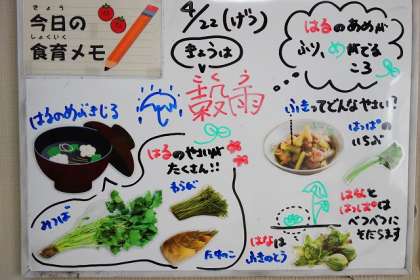 きょう
今日の
しょくいく
食育メモ
4/22(げつ)
きょうは
こくう
穀雨
はるのあめが
ふり、めがでる
ころ
はるのめぐみじる
はるのやさいが
たくさん!!
わらび
みつば
たけのこ
ふきってどんなやさい?
はっぱの
いちぶ
はなと
はっぱは
べつべつに
そだちます
はなは
ふきのとう